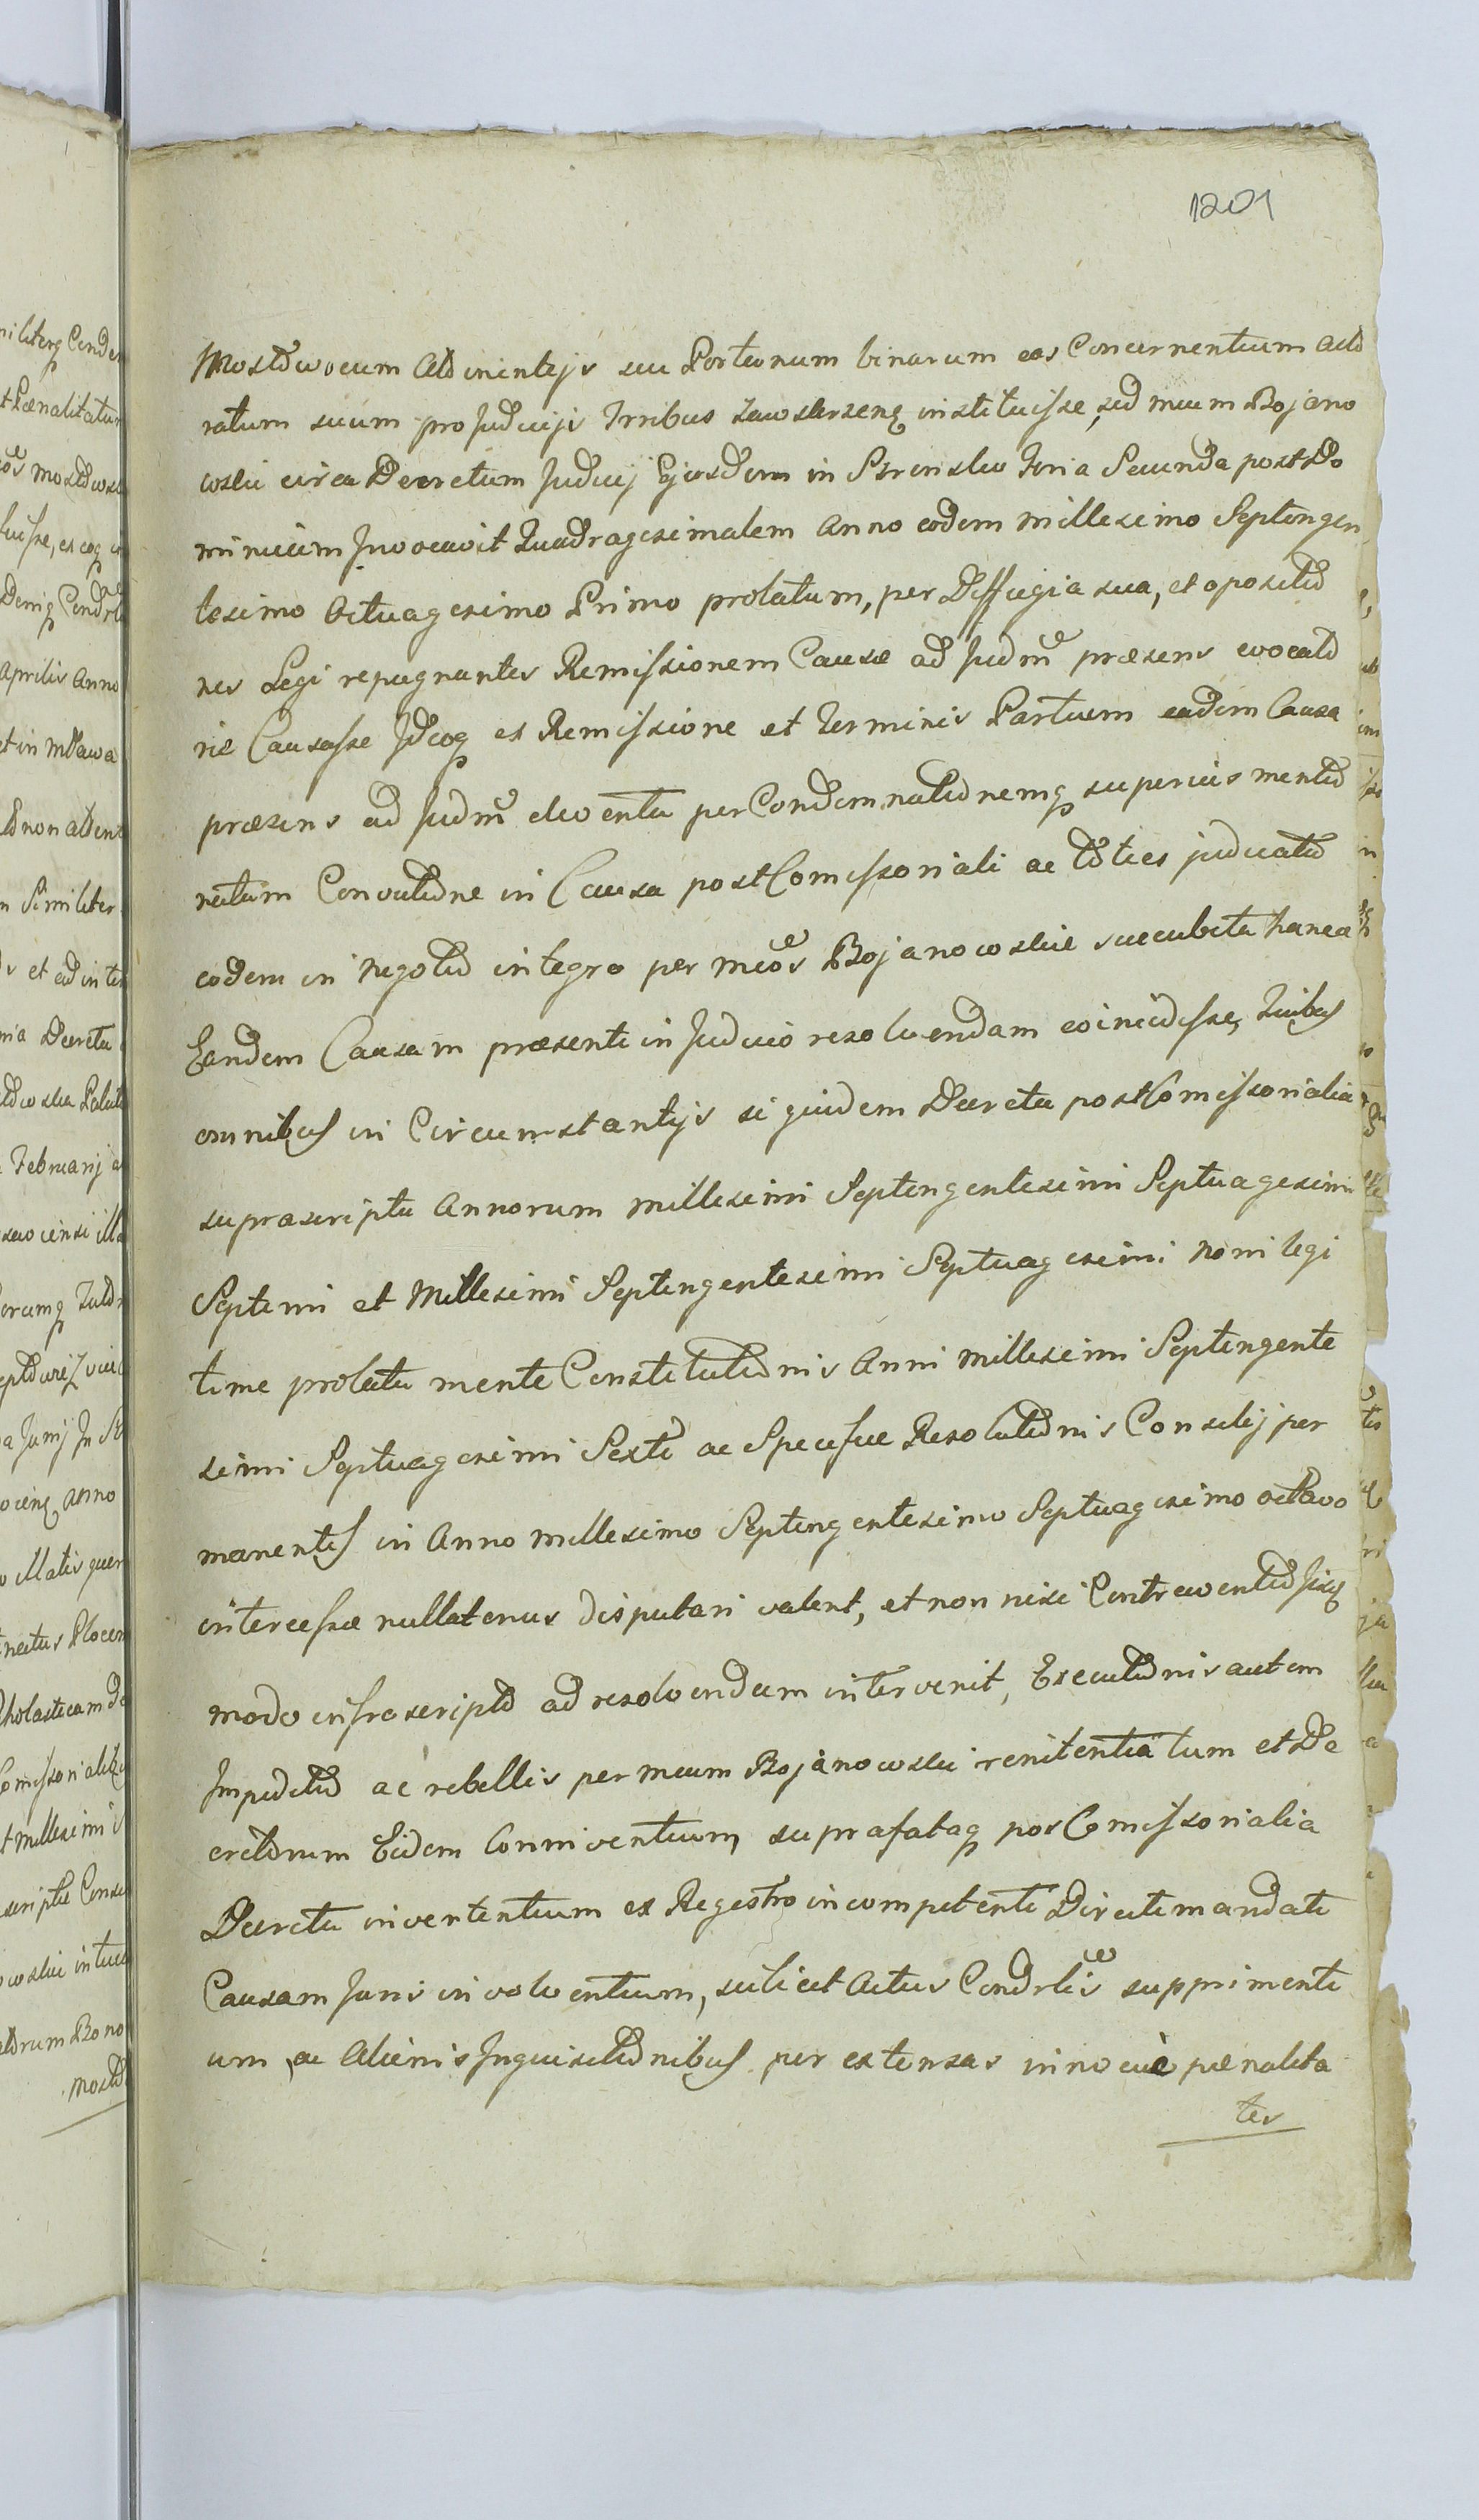 1201
Mostowocum Attinentijs seu Portionum binarum eas Concernentium acto
ratum suum pro Judicijs Trribus Zawskrzenq instituisse, sed mcum Bojano
wski circa Decretum Judicij Ejusdem in Strenslw Feria Secunda post Do
minicam Invocavit Quadragesimalem Anno eodem millesimo Septingen
tesimo Octuagesimo Primo prolatum, per Deffugia sua, et opositio
nes Legi repugnantes Remissionem Causæ ad Judm̃ præsens evocato
rie Causasse Ideoq ex Remissione et Terminis Partium eadem Causa
præsens ad Judm̃ devoenta per Condemnationemq superius mentio
natam Convictione in Causa post Comissoriali ac toties judicato
eodem in Negotio integro per mcos Bojanowskie succubita hancce
Eandem Causam præsenti in Judicio resolvendam coincidisse, Quibus
omnibus in Circumstantijs siquidem Decreta post Comissorialia
suprascripta Annorum millesimi Septingentesimi Septuagesimi
Septimi et Millesimi Septingentesimi Septuagesimi Noni legi
time prolata mente Constitutionis Anni millesimi Septingente
simi Septuagesimi Sexti ac Specificæ Resolutionis Consilij per
manentis in Anno millesimo Septingentesimo Septuagesimo octavo
intercessæ nullatenus disputari valent, et non nisi Contraventio
modo infrascripto ad resolvendum intervenit, Executionis autem
Impeditio ac rebellis per mcum Bojanowski renitentia tum et De
cretorum Eidem Conniventium, suprafataq pos Comissorialia
Decreta invertentium ex Regestro incompetenti Directi mandati
Causam Juris involventium, scilicet Actus Condrlis supprimenti
um, ac Alienis Inquisitionibus per extensas innocuè pænalita
tes
niliterq Conde
Pænalitatum
mostows
Denique
Aprilis Anno
et in Mława
non atten
Similiter
et ad in te
Decreta
Februarij a
Anno
illatis quer
Plocen
millesimi
scripta Conse
orum Bono
Mosto